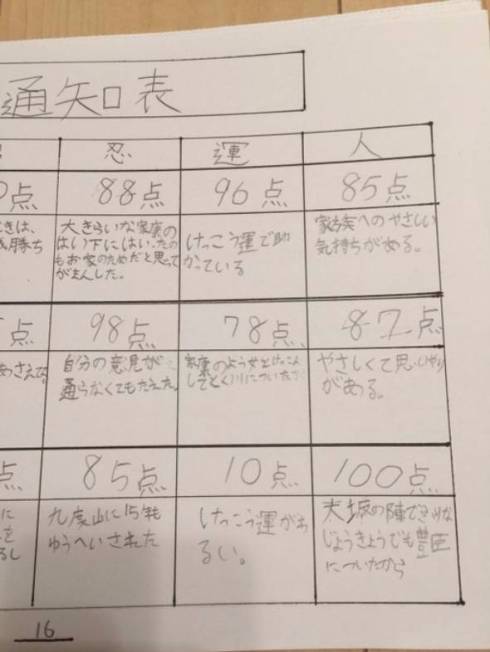 通知表
忍 運 人
点 88点 96点 85点
きは、
勝ち
大きらいな家康の
はい下にはいったの
もお家のためだと思って
がまんした。
けっこう運で助
かっている
家族へのやさしい
気持ちがある。
点 98点 78点 87点
自分の意見が
通らなくてもたえた。
家康のよう女とけっこん
してとく川についた
やさしくて思いやり
がある。
点 85点 10点 100点
に
を
るし
九度山に15年も
ゆうへいされた
けっこう運がわ
るい。
大坂の陣でふりな
じょうきょうでも豊臣
についたから
16